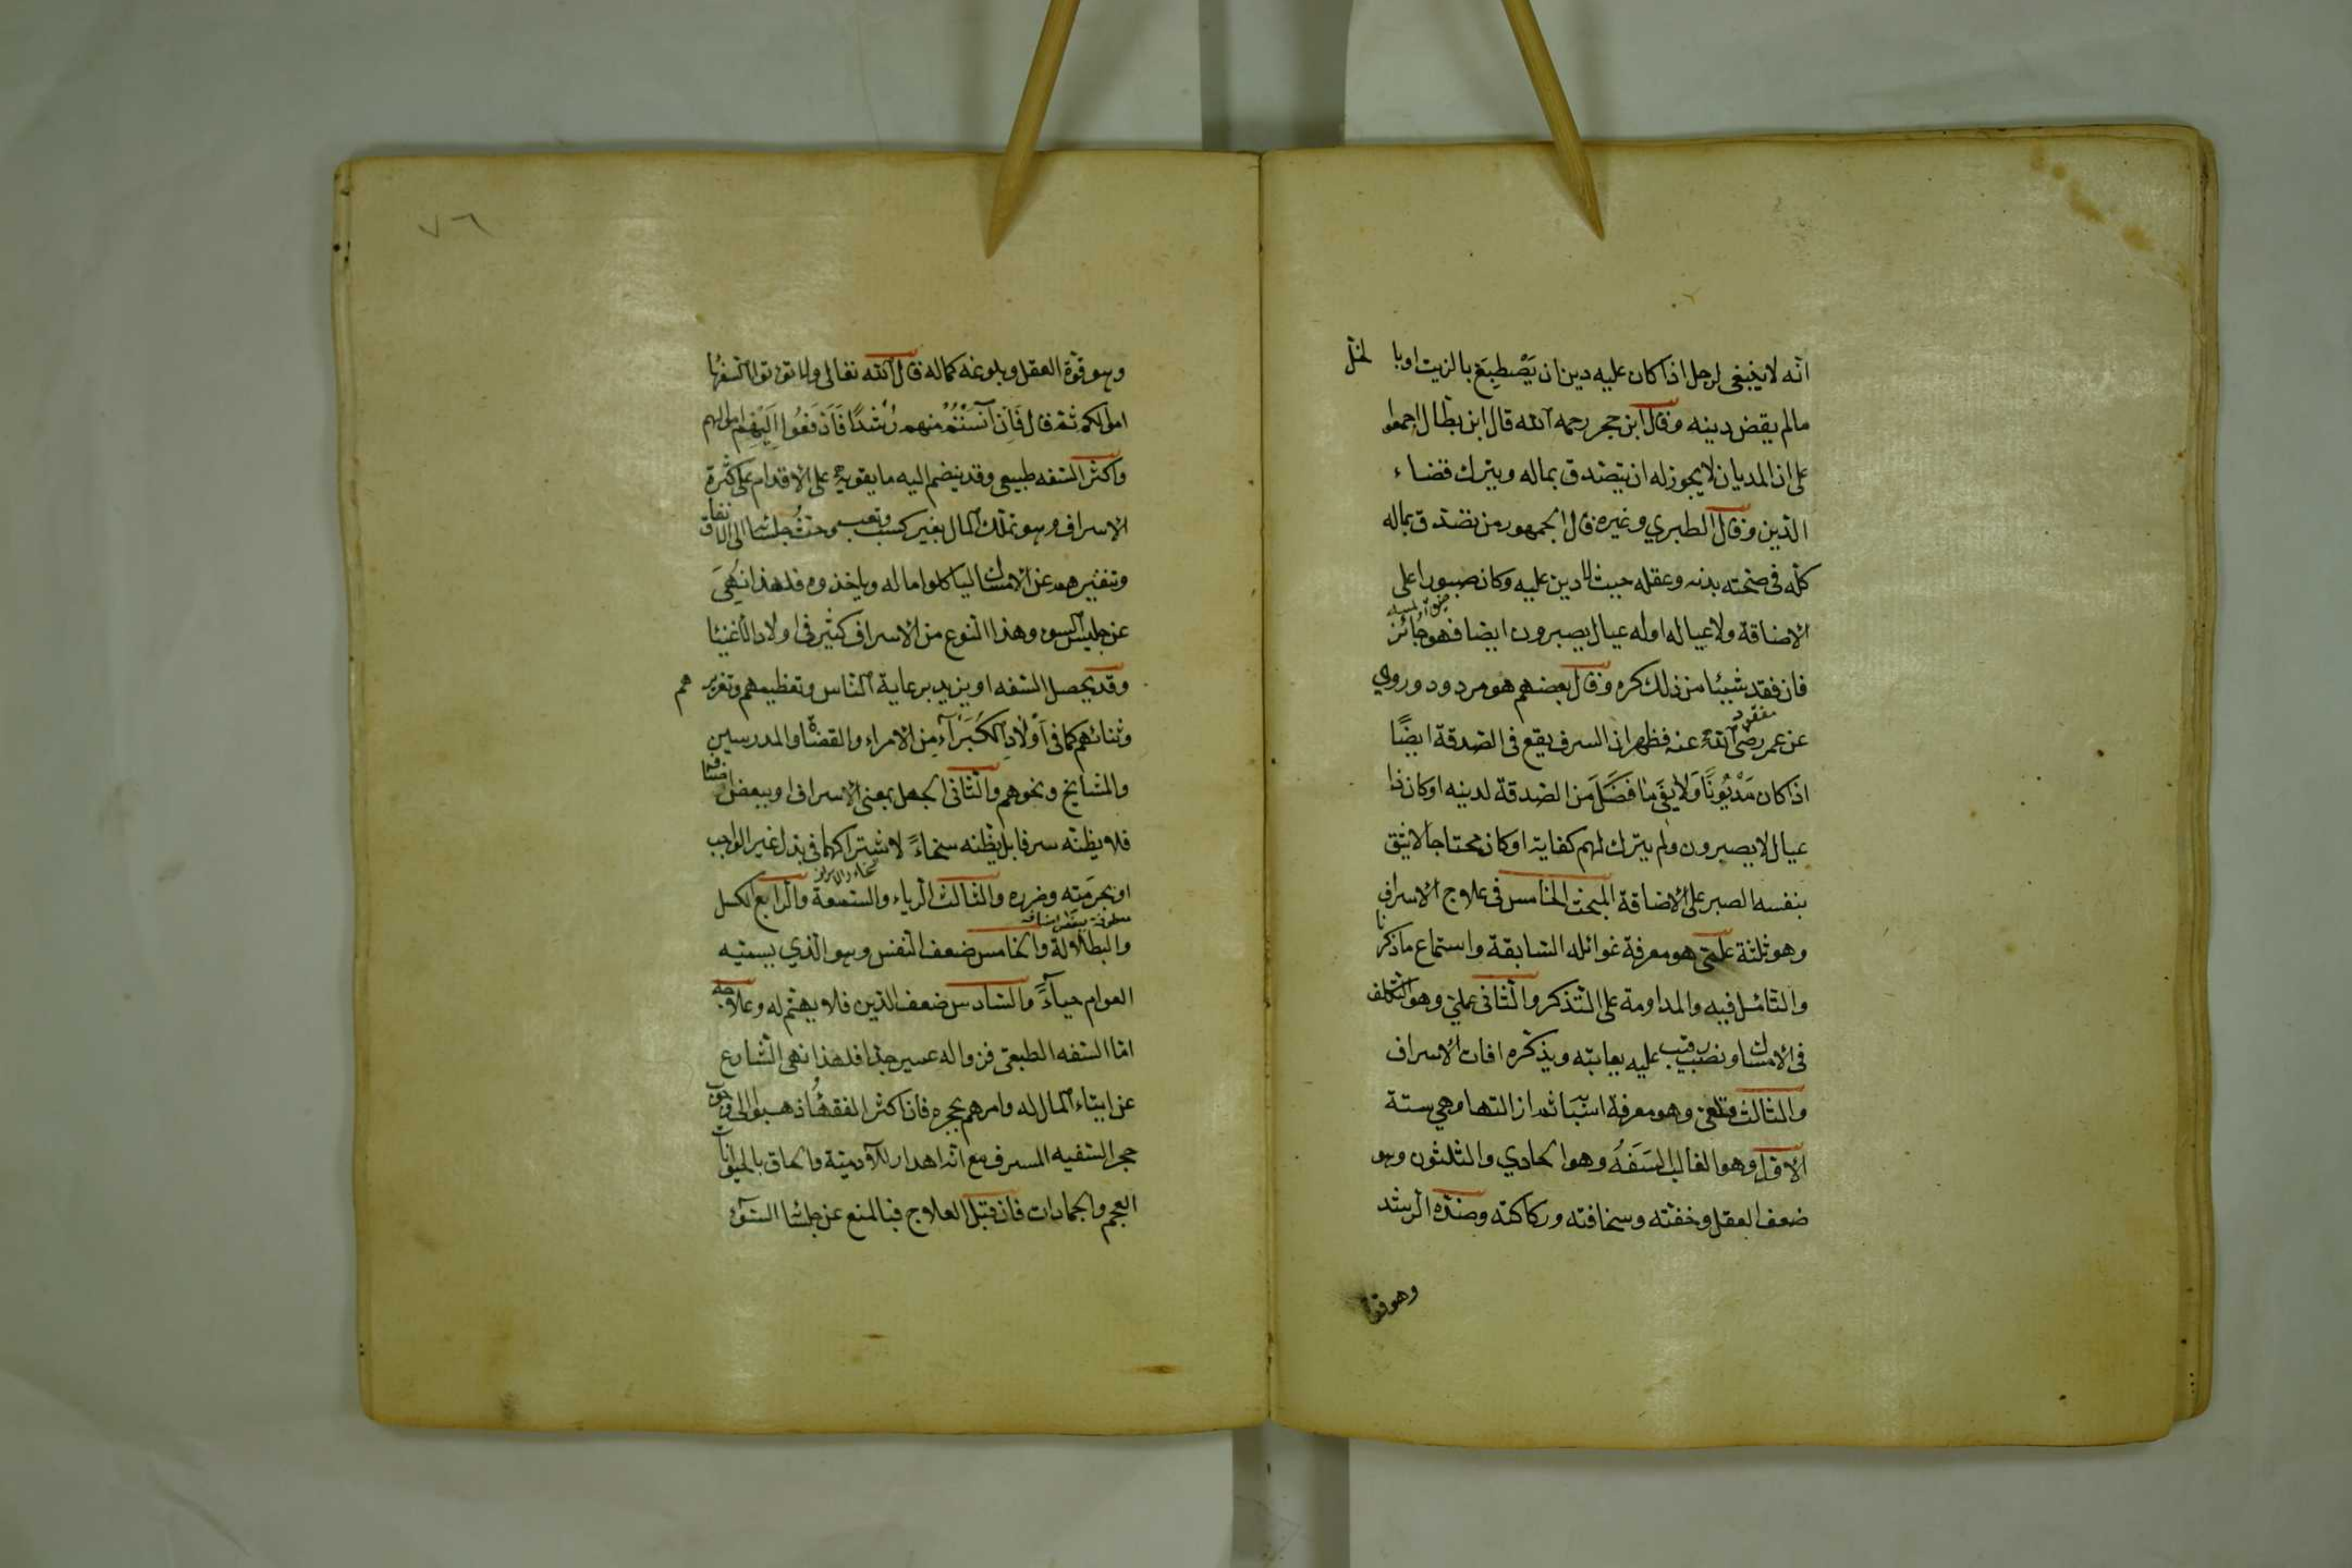 انه لا ينبغى لرجل اذا كان عليه دين ان يَصْطبِغ بالزيت او بالخل
مالم يقض دينه وقال ابن حجر رحمه الله قال ابن بطال اجمعوا
على ان المديان لا يجوز له ان يتصدق بماله ويترك قضاء
الدين وقال الطبري وغيره قال الجمهور من تصدق بماله
كله فى صحته بدنه وعقله حيث لا دين عليه وكان صبورا على
الاضاقة ولا عيال له او له عيال يصبرون ايضا فهو جائز
فان فقد شيئا من ذلك كره وقال بعضهم هو مردود وروي
عن عمر رضى الله عنه فظهر ان السرف يقع فى الصدقة ايضًا
اذا كان مَدْيُونًا وَلا يفى مَا فَضَلَ من الصدقة لدينه او كان ذا
عيال لا يصبرون ولم يترك لهم كفاية او كان محتاجا لا يثق
بنفسه الصبر على الاضاقة المبحث الخامس فى علاج الاسراف
وهو ثلثة علمى هو معرفة غوائله السابقة واستماع ما ذكرنا
والتأمل فيه والمداومة على التذكر والثانى عملى وهو التكلف
فى الامساك ونصب رقيب عليه يعاتبه ويذكره افات الاسراف
والثالث قلعى وهو معرفة اسبابه ثم ازالتها وهي ستة
الاول وهو الغالب السَفَهُ وهو الحادي والثلثون وهو
ضعف العقل وخفته وسخافته وركاكته وضده الرشد
وهو قوة
٧٦
وهو قوة العقل وبلوغه كماله قال الله تعالى ولا تؤتوا السفهاء
اموالكم ثم قال فَاِن آنَسْتُمْ منهم رُشْدًا فَادْفَعُوا اِلَيْهِم اموالهم
واكثر السفه طبيعى وقد ينضم اليه ما يقويه على الاقدام على كثرة
الاسراف وهو تملك المال بغير كسب وتعب وحث جلساء الى الانفاق
وتنفيرهم عن الامساك لياكلوا ماله وياخذوه فلهذا نُهِىَ
عن جليس السوء وهذا النوع من الاسراف كثير فى اولاد الاغنياء
وقد يحصل السفه او يزيد برعاية الناس وتعظيمهم وتعزيرهم
وثنائهم كما فى اَوْلادِ الكُبَرَآءِ من الامراء والقضاة والمدرسين
والمشايخ ونحوهم والثانى الجهل بمعنى الاسراف او ببعض اصنافه
فلا يظنه سرفا بل يظنه سخاءً لاشتراكهما فى بذل غير الواجب
او بحرمته وضرره والثالث الرياء والسمعة والرابع الكسل
والبطالة والخامس ضعف النفس وهو الذي يسميه
العوام حياءً والسادس ضعف الدين فلا يهتم له وعلاجه
اما السفه الطبعى فزواله عسير جدا فلهذا نهى الشارع
عن ايتاء المال له وامرهم بحجره فان اكثر الفقهاء ذهبوا الى وجوب
حجر السفيه المسرف مع انه اهدار للآدمية والحاق بالحيوانات
العجم والجمادات فان قبل العلاج فبالمنع عن جلساء السوء